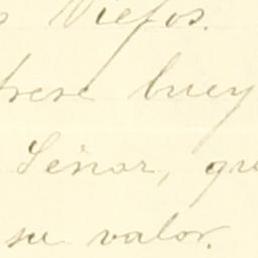 s Viejos.
trese buey
Señor, qu
su valor.